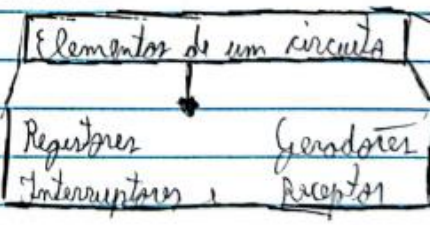 Elementos de um circuito
Registores Geradores
Interruptores e Receptor